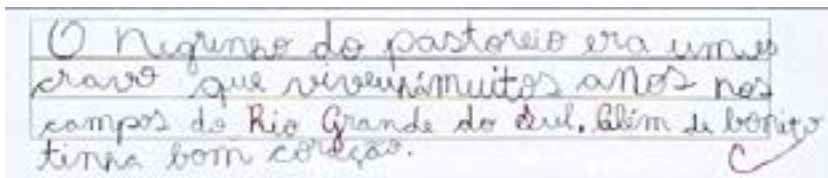 O Negrinho do pastoreio era um es
cravo que viveu muitos anos nos
campos do Rio Grande do Sul. Além de bonito
tinha bom coração.